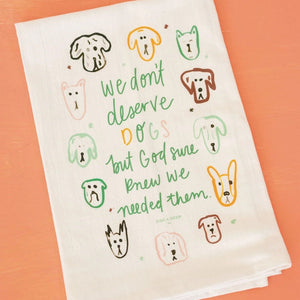 We don't
deserve
DOGS
but God sure
knew we
needed them.